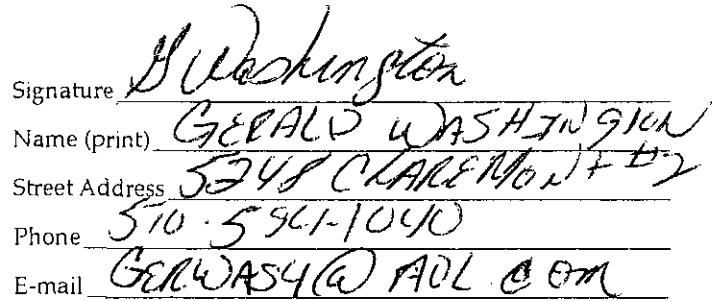 Signature G Washington
Name (print) GERALD WASHINGTON
Street Address 5248 CLAREMONT #2
Phone
E-mail GERWASY@AOL.COM